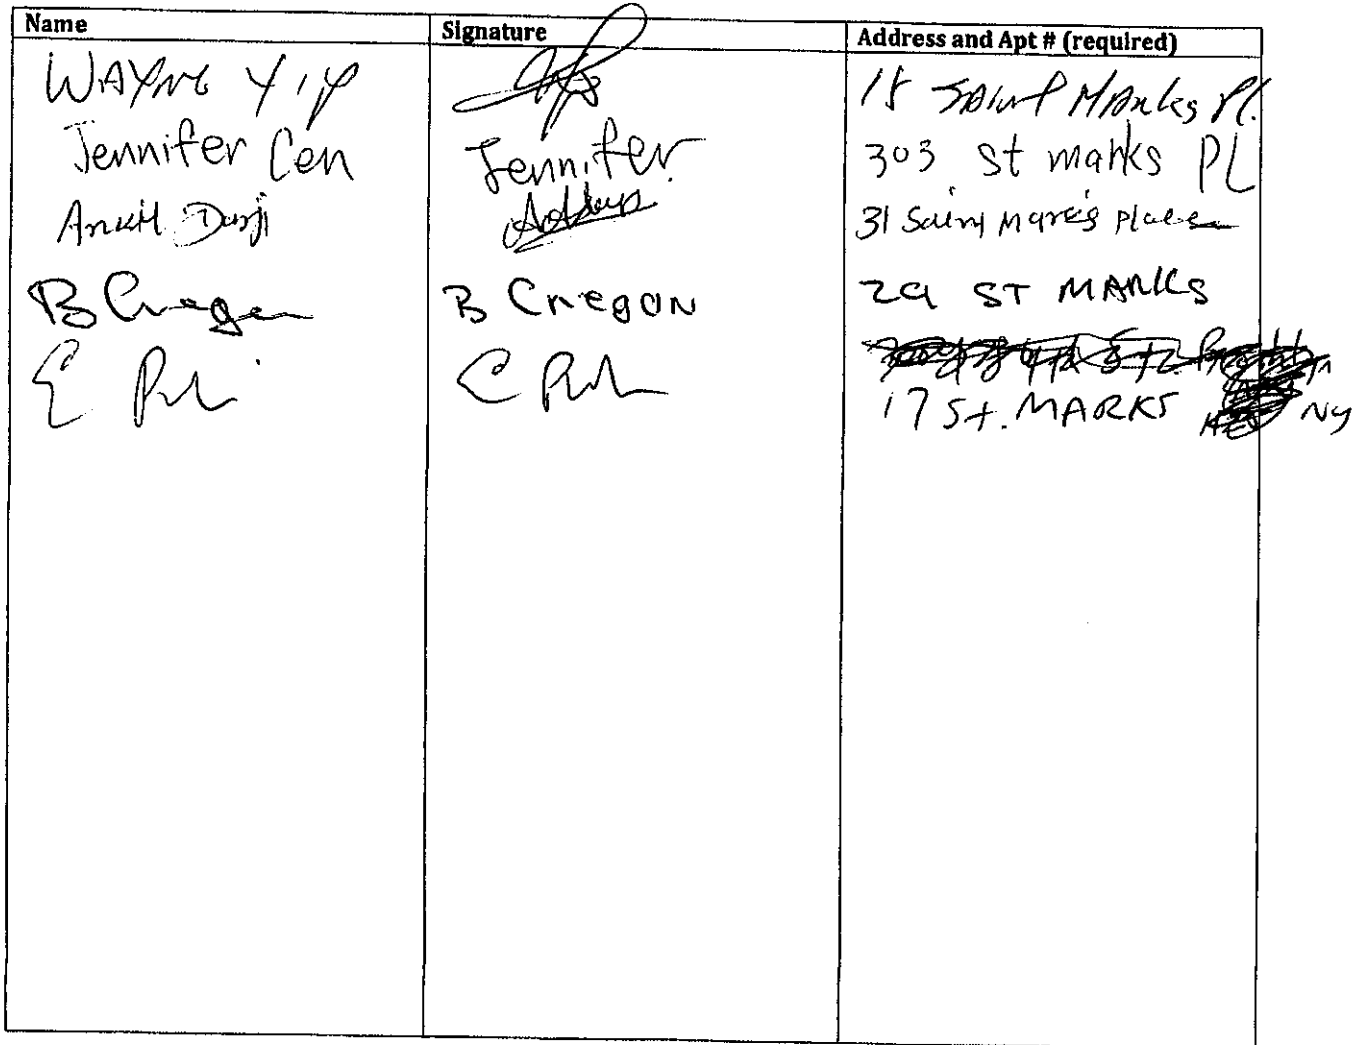 Name Signature Address and Apt # (required)
WAYNE YIP 15 Saint Marks Pl.
Jennifer Cen Jennifer 303 St marks PL
Ankit Darji 31 Saint Mark's Place
B Cregan B CregaN 29 ST MARKS
E C 17 St. MARKS NY